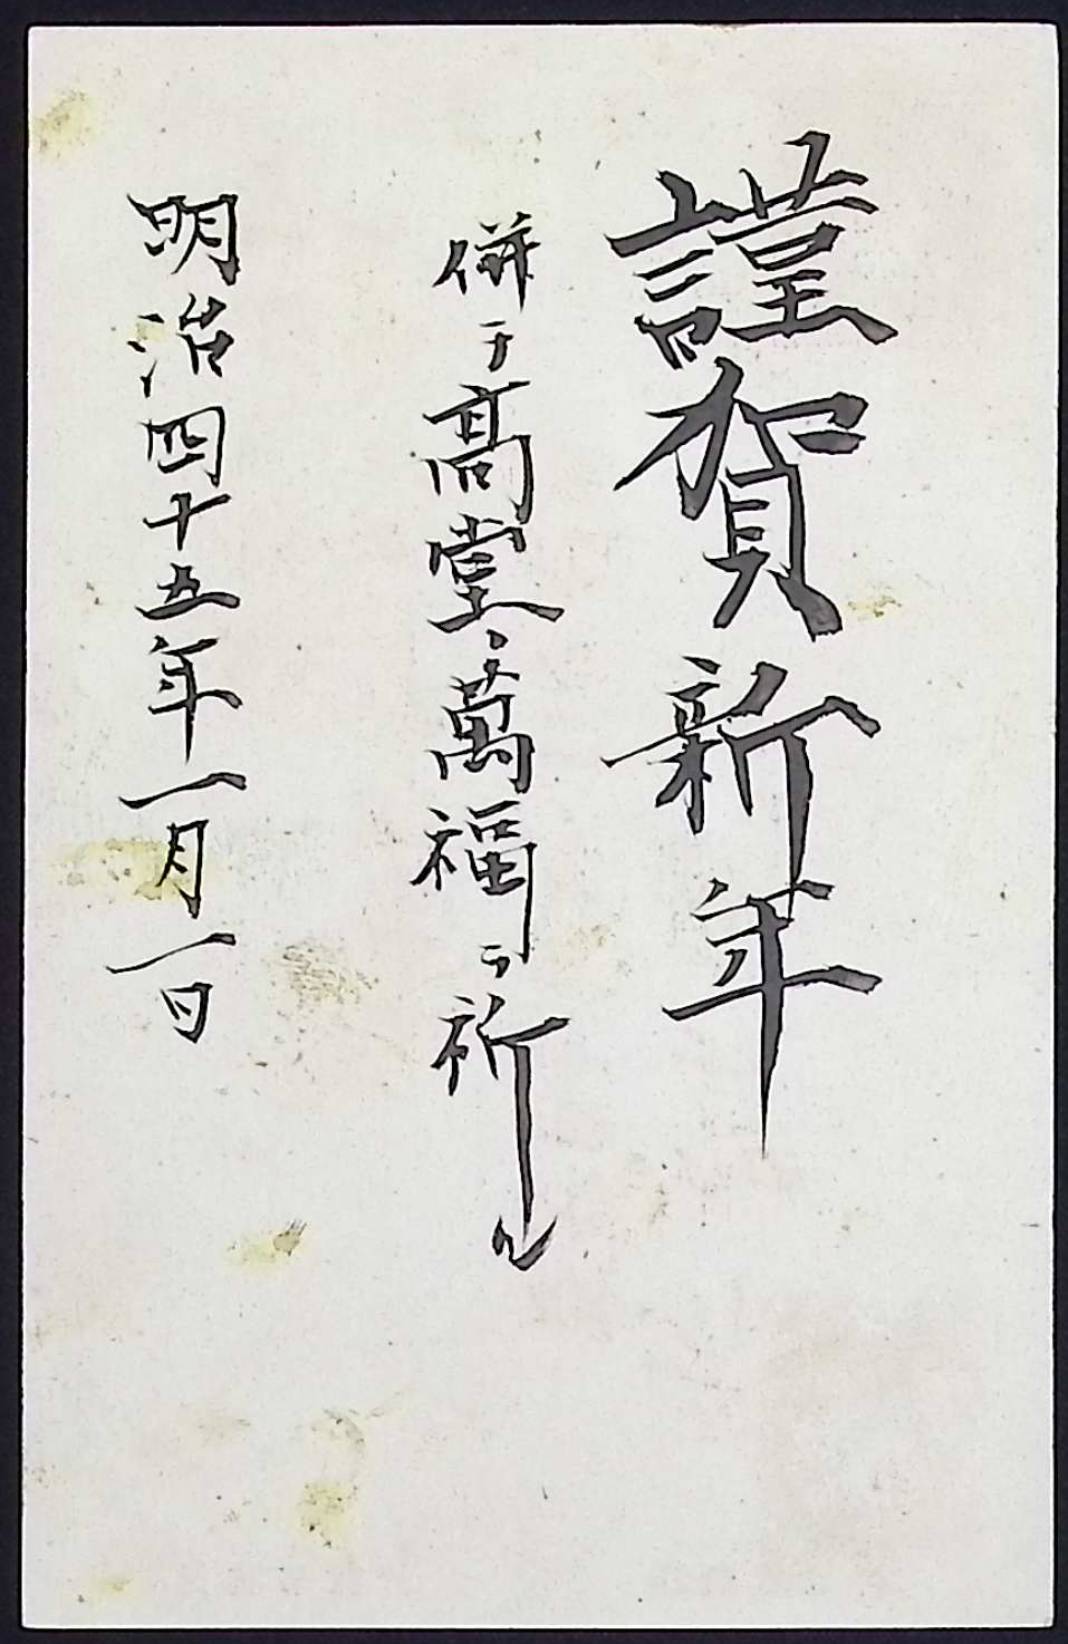 謹賀新年
併テ高堂ノ萬福ヲ祈ル
明治四十五年一月一日